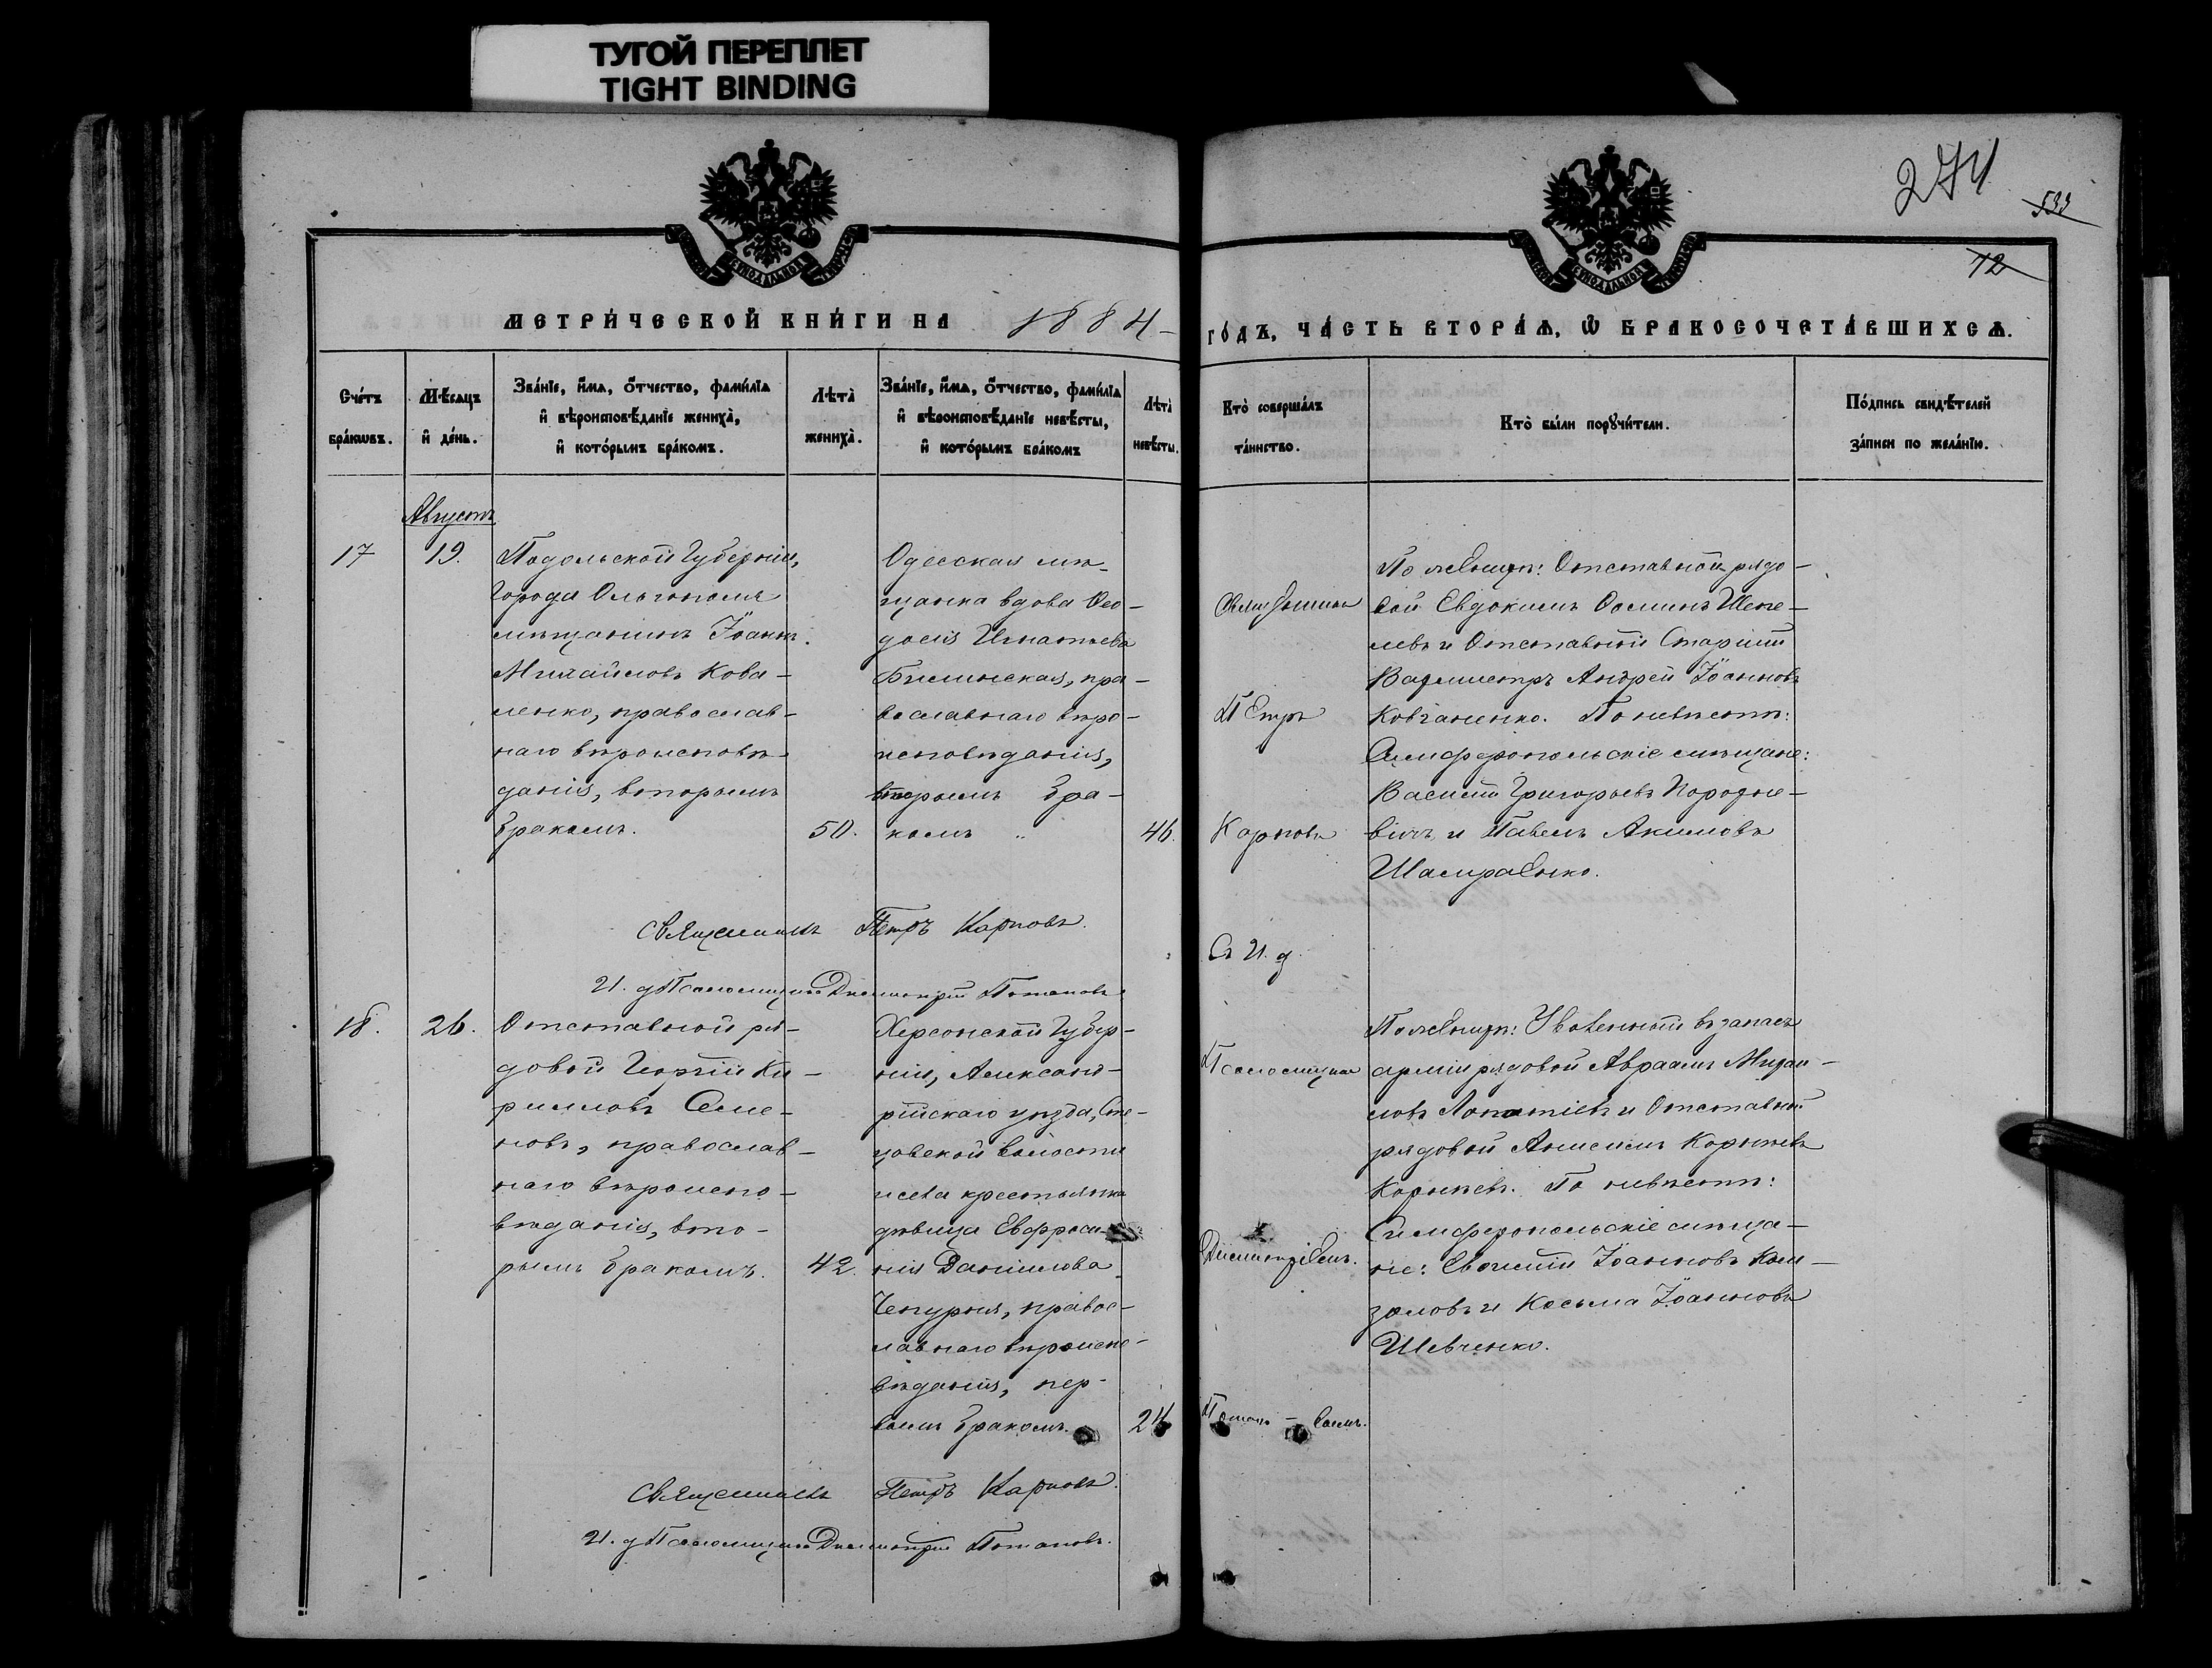 ТУГОЙ ПЕРЕПЛЕТ
TIGHT BINDING
274
533
12
МЕТРИ́ЧЕСКОЙ КНИ́ГИ НА 1884
ГО́ДЪ, ЧА́СТЬ ВТОРА́Ѧ, Ѽ БРАКОСОЧЕТА́ВШИХСѦ.
Сче́тъ
бра́ковъ.
Мѣ́сяцъ
и̂ де́нь.
Зва́нїе, и҆́мѧ, о҆́тчество, фами́лїа
и҆ вѣроисповѣ́данїе жениха̀,
и҆ кото́рымъ бра́комъ.
Лѣта̀
жениха̀.
Зва́нїе, и҆́мѧ, о҆́тчество, фами́лїа
и҆ вѣроисповѣ́данїе невѣ́сты,
и҆ кото́рымъ бра́комъ
Лѣта̀
невѣ́сты.
Кто̀ соверша́лъ
та́инство.
Кто̀ бы́ли порꙋчи́тели.
По́дпись свидѣ́телей
за́писи по жела́нїю.
Августъ
17
19.
Подольской Губерніи,
Города Ольгополя
мѣщанинъ Іоаннъ
Михайловъ Кова-
ленко, православ-
наго вѣроисповѣ-
данія, вторымъ
бракомъ.
50.
Одесская мѣ-
щанка вдова Ѳео-
досія Игнатьева
Билинская, пра-
вославнаго вѣро-
исповѣданія,
вторымъ бра-
комъ
46.
Священникъ
Петръ
Карповъ
Съ И. д.
По женихѣ: Отставной рядо-
вой Евдокимъ Ѳоминъ Шепе-
левъ и Отставной Старшій
Вахмистръ Андрей Іоанновъ
Ковганенко. По невѣстѣ:
Симферопольскіе мѣщане:
Василій Григорьевъ
вичъ и Павелъ Акимовъ
Шамраенко.
Священникъ Петръ Карповъ.
И. д. Псаломщика Димитрій Потаповъ
18.
26.
Отставной ря-
довой Георгій Ки-
рилловъ Семе-
новъ, православ-
наго вѣроиспо-
вѣданія, вто-
рымъ бракомъ.
42.
Херсонской Губер-
ніи, Александ-
рійскаго уѣзда,
волости
и села крестьянка
дѣвица Евфроси-
нія Даніилова
Чепурня, правос-
лавнаго вѣроиспо-
вѣданія, пер-
вымъ бракомъ.
24
Псаломщикомъ
Димитріемъ
Потапо-вымъ.
По женихѣ: Уволенный въ запасъ
арміи рядовой Авраамъ Михаи-
ловъ и Отставной
рядовой Анисимъ Корнѣевъ
Корнѣевъ. По невѣстѣ:
Симферопольскіе мѣща-
не: Евгеній Іоанновъ Кам-
золовъ и Косьма Іоанновъ
Шевченко.
Священникъ Петръ Карповъ.
И. д. Псаломщика Димитрій Потаповъ.